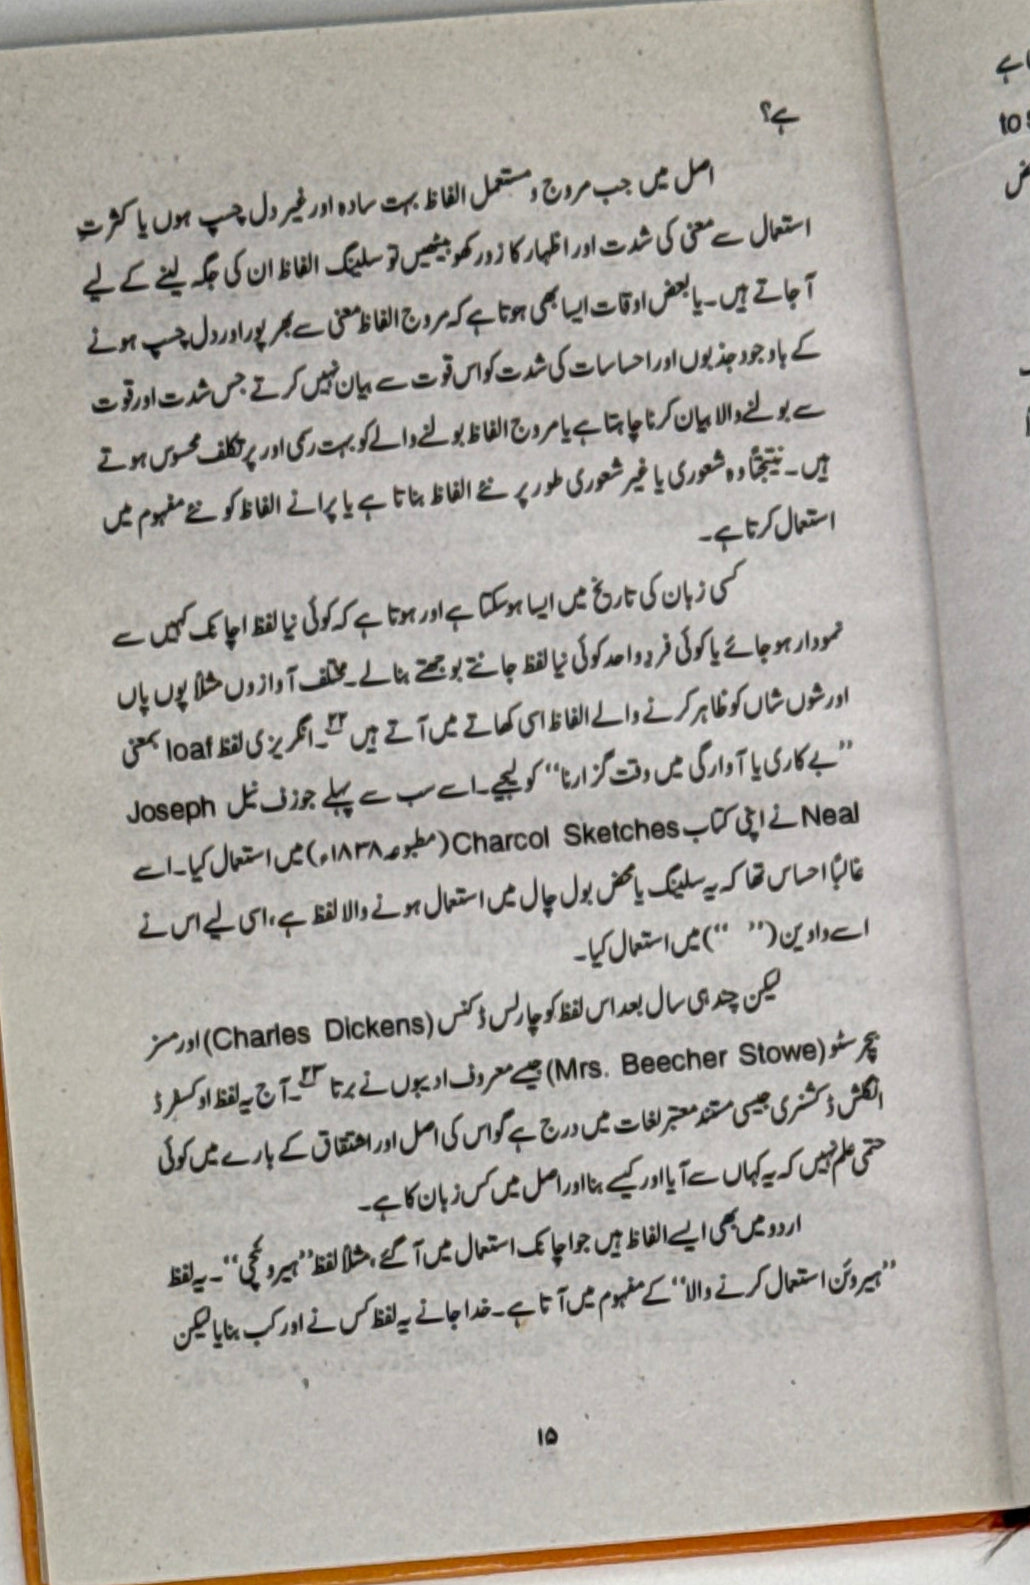 ہے؟
اصل میں جب مروج و مستعمل الفاظ بہت سادہ اور غیر دل چسپ ہوں یا کثرتِ
استعمال سے معنی کی شدت اور اظہار کا زور کھو بیٹھیں تو سلینگ الفاظ ان کی جگہ لینے کے لیے
آجاتے ہیں۔ یا بعض اوقات ایسا بھی ہوتا ہے کہ مروج الفاظ معنی سے بھرپور اور دل چسپ ہونے
کے باوجود جذبوں اور احساسات کی شدت کو اس قوت سے بیان نہیں کرتے جس شدت اور قوت
سے بولنے والا بیان کرنا چاہتا ہے یا مروج الفاظ بولنے والے کو بہت رسمی اور پرتکلف محسوس ہوتے
ہیں۔ نتیجتاً وہ شعوری یا غیر شعوری طور پر نئے الفاظ بناتا ہے یا پرانے الفاظ کو نئے مفہوم میں
استعمال کرتا ہے۔
کسی زبان کی تاریخ میں ایسا ہوسکتا ہے اور ہوتا ہے کہ کوئی نیا لفظ اچانک کہیں سے
نمودار ہوجائے یا کوئی فردِ واحد کوئی نیا لفظ جانتے بوجھتے بنالے۔ مختلف آوازوں مثلاً پوں پاں
اور شوں شاں کو ظاہر کرنے والے الفاظ اسی کھاتے میں آتے ہیں ۲۲۔ انگریزی لفظ loaf بمعنی
’’بے کاری یا آوارگی میں وقت گزارنا‘‘ کو لیجیے۔ اسے سب سے پہلے جوزف نیل Joseph
Neal نے اپنی کتاب Charcol Sketches (مطبوعہ ۱۸۳۸ء) میں استعمال کیا۔ اسے
غالباً احساس تھا کہ یہ سلینگ یا محض بول چال میں استعمال ہونے والا لفظ ہے، اسی لیے اس نے
اسے واوین (’’ ‘‘) میں استعمال کیا۔
لیکن چند ہی سال بعد اس لفظ کو چارلس ڈکنس (Charles Dickens) اور مسز
بیچر سٹو (Mrs. Beecher Stowe) جیسے معروف ادیبوں نے برتا ۲۳۔ آج یہ لفظ اوکسفرڈ
انگلش ڈکشنری جیسی مستند معتبر لغات میں درج ہے گو اس کی اصل اور اشتقاق کے بارے میں کوئی
حتمی علم نہیں کہ یہ کہاں سے آیا اور کیسے بنا اور اصل میں کس زبان کا ہے۔
اردو میں بھی ایسے الفاظ ہیں جو اچانک استعمال میں آگئے، مثلاً لفظ ’’ہیروئنچی‘‘۔ یہ لفظ
’’ہیروئن استعمال کرنے والا‘‘ کے مفہوم میں آتا ہے۔ خدا جانے یہ لفظ کس نے اور کب بنایا لیکن
۱۵
to